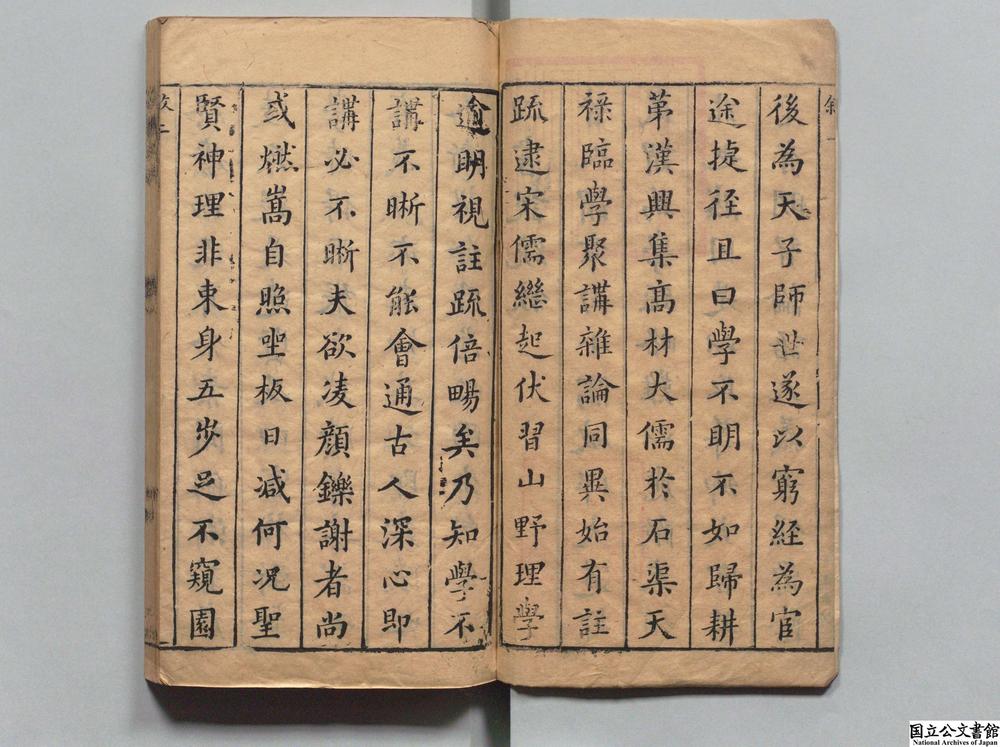 叙一
後為天子師世遂以窮經為官
途捷徑且曰學不明不如歸耕
第漢興集髙材大儒於石渠天
祿臨學聚講雜論同異始有註
疏逮宋儒繼起伏習山野理學
逾明視註疏倍暢矣乃知學不
講不晰不能會通古人深心即
講必不晰夫欲凌顏鑠謝者尚
或燃嵩自照坐板日减何况聖
賢神理非束身五步足不窺園
國立公文書館
National Archives of Japan